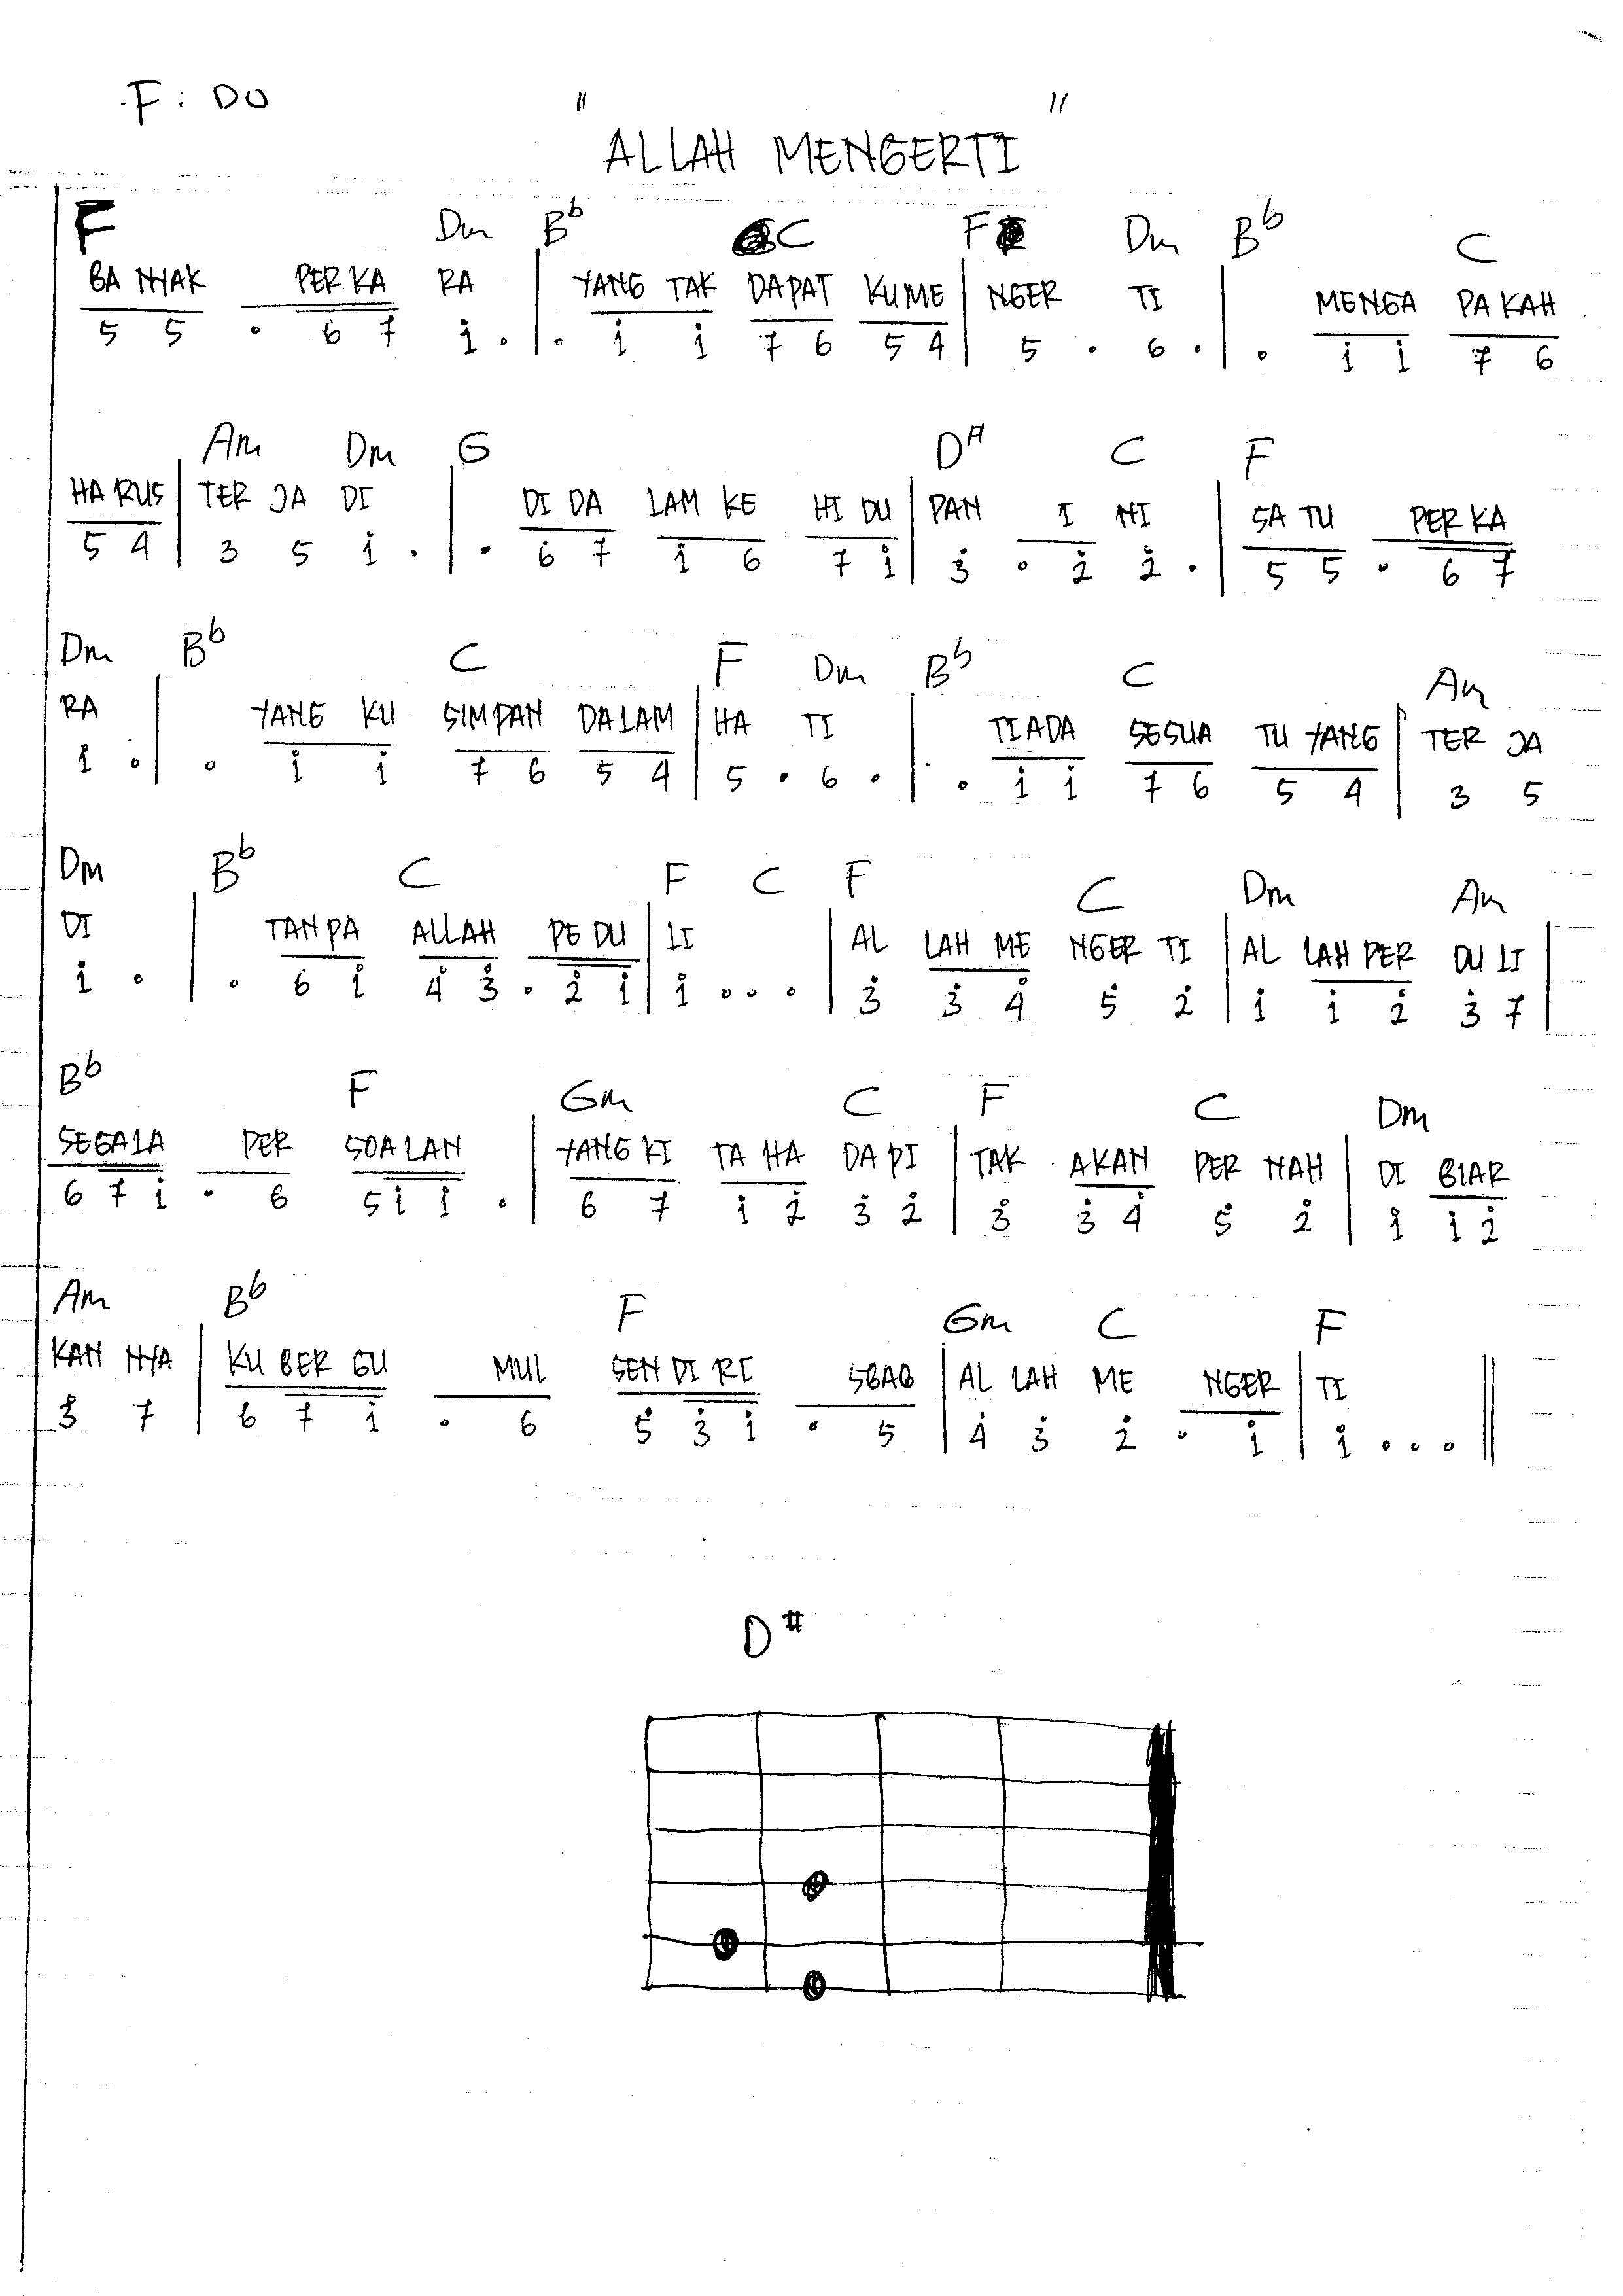 F : DO
" ALLAH MENGERTI "
F Dm Bb C F Dm Bb C
BA NYAK PER KA RA | YANG TAK DAPAT KUME | NGER TI | MENGA PA KAH
5 5 . 6 7 i . | . i i 7 6 5 4 | 5 . 6 . | . i i 7 6
Am Dm G D# C F
HA RUS | TER JA DI | DI DA LAM KE HI DU | PAN I NI | SA TU PER KA
5 4 | 3 5 i . | . 6 7 i 6 7 i | 3̇ . 2̇ 2̇ . | 5 5 . 6 7
Dm Bb C F Dm Bb C Am
RA | YANG KU SIMPAN DALAM | HA TI | TIADA SESUA TU YANG | TER JA
1 . | . i i 7 6 5 4 | 5 . 6 . | . i i 7 6 5 4 | 3 5
Dm Bb C F C F C Dm Am
DI | TANPA ALLAH PE DU | LI | AL LAH ME NGER TI | AL LAH PER DU LI |
i . | . 6 i 4̇ 3̇ . 2̇ i | i . . . | 3̇ 3̇ 4̇ 5̇ 2̇ | i i 2̇ 3̇ 7 |
Bb F Gm C F C Dm
SEGALA PER SOALAN | YANG KI TA HA DA PI | TAK AKAN PER NAH | DI BIAR
6 7 i . 6 5 i i . | 6 7 i 2̇ 3̇ 2̇ | 3̇ 3̇ 4̇ 5̇ 2̇ | i i 2̇
Am Bb F Gm C F
KAN NYA | KU BER GU MUL SEN DI RI SBAB | AL LAH ME NGER | TI ||
3̇ 7 | 6 7 i . 6 5̇ 3̇ i . 5 | 4̇ 3̇ 2̇ . i | i . . . ||
D#